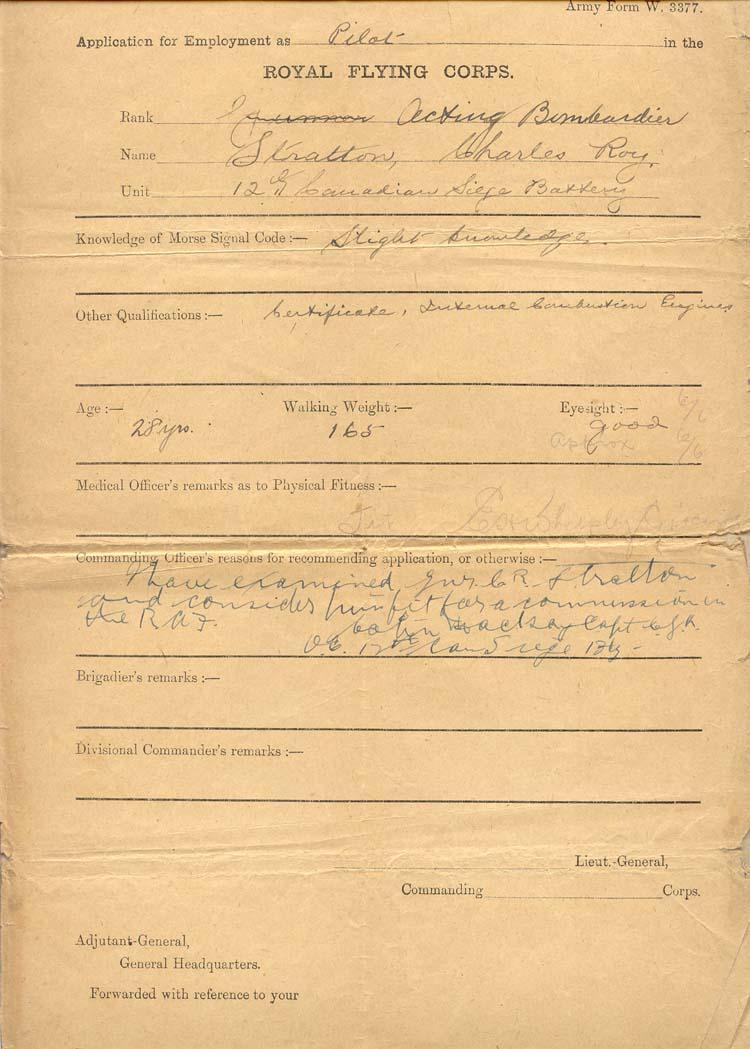 Army Form W. 3377.
Application for Employment as Pilot in the
ROYAL FLYING CORPS.
Rank Gunner Acting Bombardier
Name Stratton, Charles Roy.
Unit 12th Canadian Siege Battery
Knowledge of Morse Signal Code:— Slight knowledge.
Other Qualifications:— Certificate, Internal Combustion Engines
Age:— Walking Weight:— Eyesight:— 6/6
28 yrs. 165 good
approx 6/6
Medical Officer's remarks as to Physical Fitness:—
Fit
Commanding Officer's reasons for recommending application, or otherwise:—
I have examined Gnr. C.R. Stratton
and consider him fit for a commission in
the R A F. Capt
O.C. 12th Can Siege Bty-
Brigadier's remarks:—
Divisional Commander's remarks:—
Lieut.-General,
Commanding Corps.
Adjutant-General,
General Headquarters.
Forwarded with reference to your